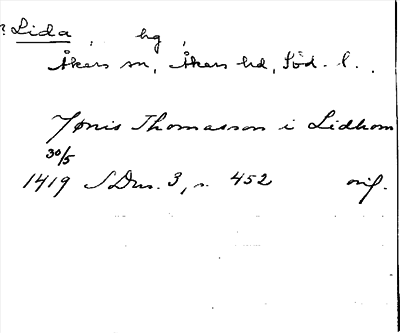 ? Lida, hg,
Åkers sn, Åkers hd, Söd. l.
Jønis Thomasson i Lidhom
30/5
1419 SDns. 3, s. 452 orig.